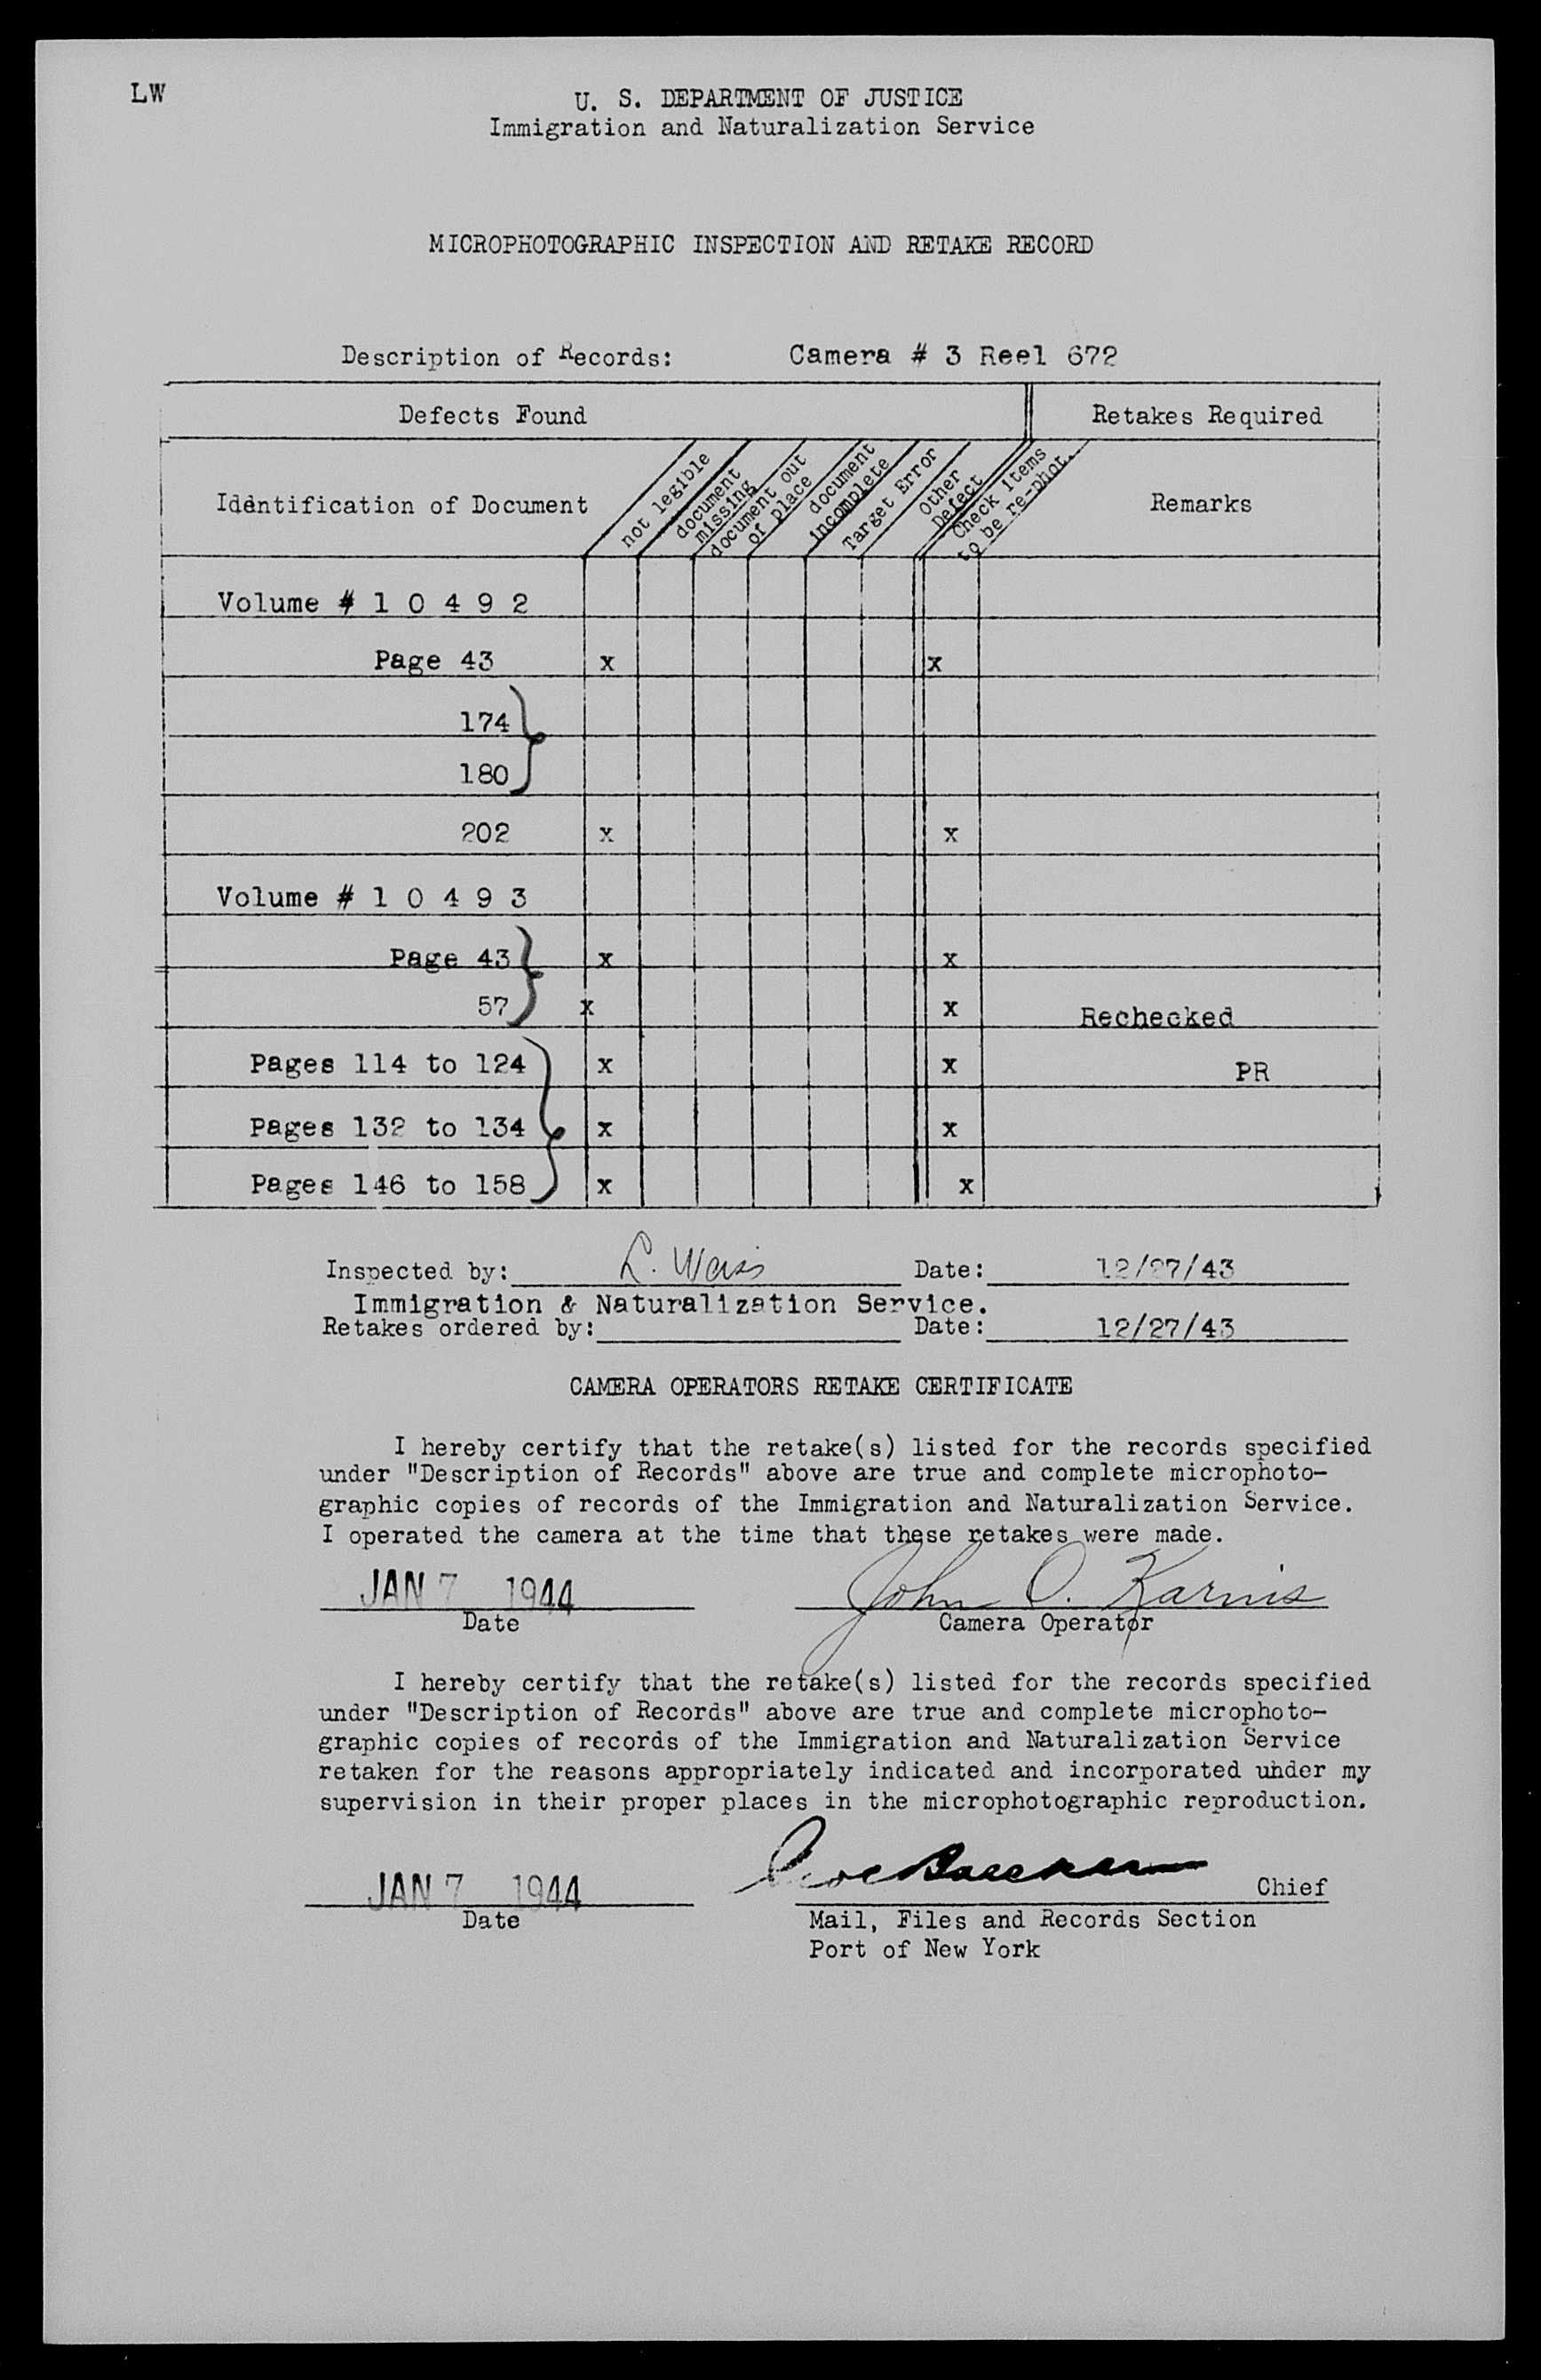 LW
U. S. DEPARTMENT OF JUSTICE
Immigration and Naturalization Service
MICROPHOTOGRAPHIC INSPECTION AND RETAKE RECORD
Description of Records: Camera # 3 Reel 672
Defects Found Retakes Required
Identification of Document not legible document missing document out of place document incomplete Target Error Other Defect Check items to be re-phot. Remarks
Volume # 1 0 4 9 2
Page 43 x x
174
180
202 x x
Volume # 1 0 4 9 3
Page 43 x x
57 x x Rechecked
Pages 114 to 124 x x PR
Pages 132 to 134 x x
Pages 146 to 158 x x
Inspected by: L. Weiss Date: 12/27/43
Immigration & Naturalization Service.
Retakes ordered by: Date: 12/27/43
CAMERA OPERATORS RETAKE CERTIFICATE
I hereby certify that the retake(s) listed for the records specified
under "Description of Records" above are true and complete microphoto-
graphic copies of records of the Immigration and Naturalization Service.
I operated the camera at the time that these retakes were made.
JAN 7 1944 John O. Karnis
Date Camera Operator
I hereby certify that the retake(s) listed for the records specified
under "Description of Records" above are true and complete microphoto-
graphic copies of records of the Immigration and Naturalization Service
retaken for the reasons appropriately indicated and incorporated under my
supervision in their proper places in the microphotographic reproduction.
JAN 7 1944 Chief
Date Mail, Files and Records Section
Port of New York